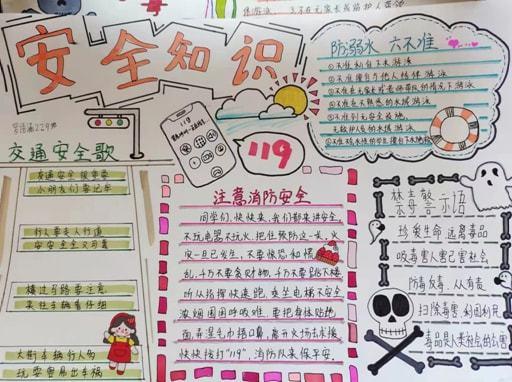 安全知识
防溺水 六不准
①不准私自下水游泳
②不准擅自与他人结伴游泳
③不准在无家长或老师带队的情况下游泳
④不准在不熟悉的水域游泳
⑤不准到无安全设施、
无救护人员的水域游泳
119
119
交通安全歌
交通安全很重要
小朋友们要记牢
行人要走人行道
安安全全又可靠
横过马路要注意
来往车辆看仔细
大街车辆行人多
玩耍容易出车祸
注意消防安全
同学们,快快来,我们都来讲安全。
不玩电器不玩火,把住预防这一关,火
灾一旦已发生,不要惊恐和慌
乱,千万不要贪财物,千万不要跳下楼
听从指挥快速跑,莫坐电梯不安全
浓烟围困呼吸难,要把身体贴地
面,弄湿毛巾捂口鼻,离开火场去求援
快快拨打“119”,消防队来保平安。
禁毒警示语
珍爱生命 远离毒品
吸毒害人害己害社会
防毒反毒,从人有责
扫除毒害 利国利民
毒品是人类社会的公害